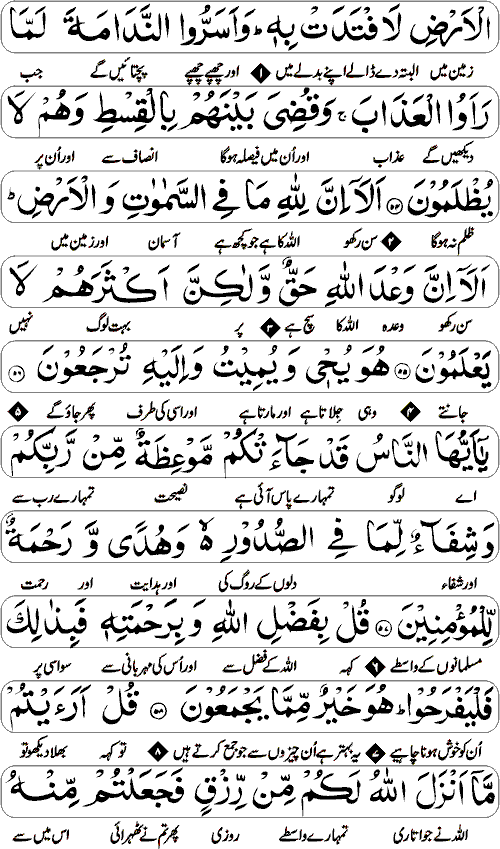 الْاَرْضِ لَافْتَدَتْ بِهٖ ؕ وَاَسَرُّوا النَّدَامَةَ لَمَّا
زمین میں البتہ دے ڈالے اپنے بدلے میں ۱ اور چھپے چھپے پچتائیں گے جب
رَاَوُا الْعَذَابَ ۚ وَقُضِیَ بَیْنَهُمْ بِالْقِسْطِ وَهُمْ لَا
دیکھیں گے عذاب اور اُن میں فیصلہ ہوگا انصاف سے اور اُن پر
یُظْلَمُوْنَ ۵۴ اَلَاۤ اِنَّ لِلّٰهِ مَا فِی السَّمٰوٰتِ وَ الْاَرْضِ ؕ
ظلم نہ ہوگا ۲ سن رکھو اللہ کا ہے جو کچھ ہے آسمان اور زمین میں
اَلَاۤ اِنَّ وَعْدَ اللّٰهِ حَقٌّ وَّلٰكِنَّ اَكْثَرَهُمْ لَا
سن رکھو وعدہ اللہ کا سچ ہے ۳ پر بہت لوگ نہیں
یَعْلَمُوْنَ ۵۵ هُوَ یُحْیٖ وَ یُمِیْتُ وَاِلَیْهِ تُرْجَعُوْنَ ۵۶
جانتے ۴ وہی جِلاتا ہے اور مارتا ہے اور اسی کی طرف پھر جاؤ گے ۵
یٰۤاَیُّهَا النَّاسُ قَدْ جَآءَتْكُمْ مَّوْعِظَةٌ مِّنْ رَّبِّكُمْ
اے لوگو تمہارے پاس آئی ہے نصیحت تمہارے رب سے
وَشِفَآءٌ لِّمَا فِی الصُّدُوْرِ ۙ۬ وَهُدًی وَّ رَحْمَةٌ
اور شفاء دلوں کے روگ کی اور ہدایت اور رحمت
لِّلْمُؤْمِنِیْنَ ۵۷ قُلْ بِفَضْلِ اللّٰهِ وَ بِرَحْمَتِهٖ فَبِذٰلِكَ
مسلمانوں کے واسطے ۶ کہہ اللہ کے فضل سے اور اُس کی مہربانی سے سو اسی پر
فَلْیَفْرَحُوْا ؕ هُوَ خَیْرٌ مِّمَّا یَجْمَعُوْنَ ۵۸ قُلْ اَرَءَیْتُمْ
اُن کو خوش ہونا چاہیے ۷ یہ بہتر ہے اُن چیزوں سے جو جمع کرتے ہیں ۸ تو کہہ بھلا دیکھو تو
مَّاۤ اَنْزَلَ اللّٰهُ لَكُمْ مِّنْ رِّزْقٍ فَجَعَلْتُمْ مِّنْهُ
اللہ نے جو اتاری تمہارے واسطے روزی پھر تم نے ٹھہرائی اس میں سے